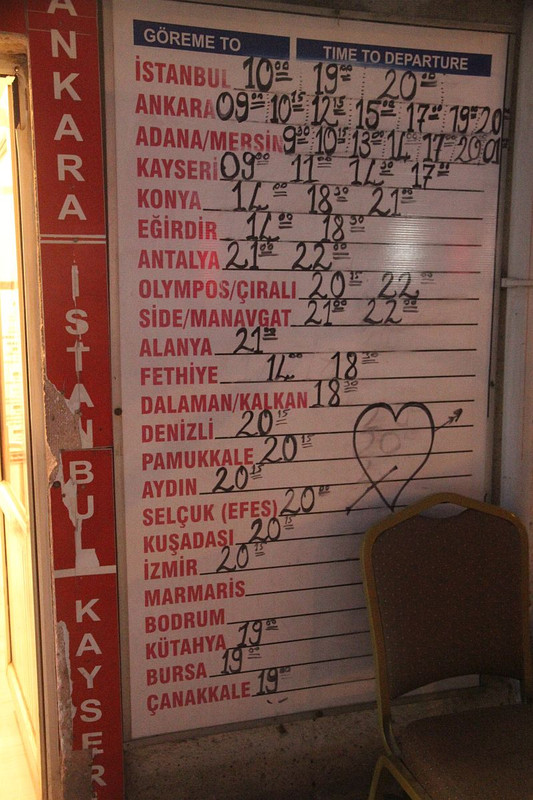 ANKARA
İSTANBU
KAYSER
GÖREME TO
TIME TO DEPARTURE
İSTANBUL 10⁰⁰ 19⁰⁰ 20
ANKARA 09 10¹⁵ 12¹⁵ 15⁰⁰ 17 19 20
ADANA/MERSİN 9³⁰ 10¹⁵ 13 14 17 20
KAYSERİ 09⁰⁰ 11⁰⁰ 14³⁰ 17
KONYA 14⁰⁰ 18³⁰ 21⁰⁰
EĞİRDİR 14⁰⁰ 18³⁰
ANTALYA 21⁰⁰ 22⁰⁰
OLYMPOS/ÇIRALI 20 22⁰⁰
SİDE/MANAVGAT 21⁰⁰ 22
ALANYA 21
FETHİYE 14⁰⁰ 18³⁰
DALAMAN/KALKAN 18³⁰
DENİZLİ 20¹⁵
PAMUKKALE 20¹⁵
AYDIN 20¹⁵
SELÇUK (EFES) 20
KUŞADASI 20¹⁵
İZMİR 20¹⁵
MARMARİS
BODRUM
KÜTAHYA 19⁰⁰
BURSA 19⁰⁰
ÇANAKKALE 19⁰⁰